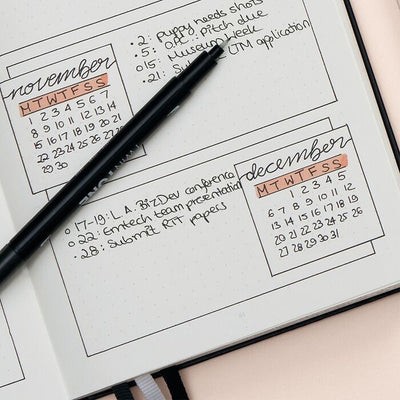 november
M T W T F S S
1 2 3 4 5 6 7
8 9 10 11 12 13 14
15 16 17 18 19 20 21
22 23 24 25 26 27 28
29 30
• 2: Puppy needs shots
• 5: O.P.C.: Pitch due
o 15: Museum Week
• 21: LTM application
december
M T W T F S S
1 2 3 4 5
6 7 8 9 10 11 12
13 14 15 16 17 18 19
20 21 22 23 24 25 26
27 28 29 30 31
o 17-19: L.A. BizDev conference
o 22: Emtech team presentation
• 28: Submit RIT papers